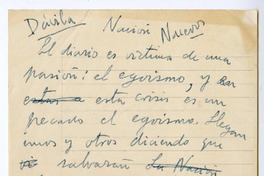 Dávila Nación Nuevos
El diario es víctima de una
pasión: el egoísmo, y en
esta crisis es un
pecado el egoísmo. Llegan
unos y otros diciendo que
salvarán La Nación